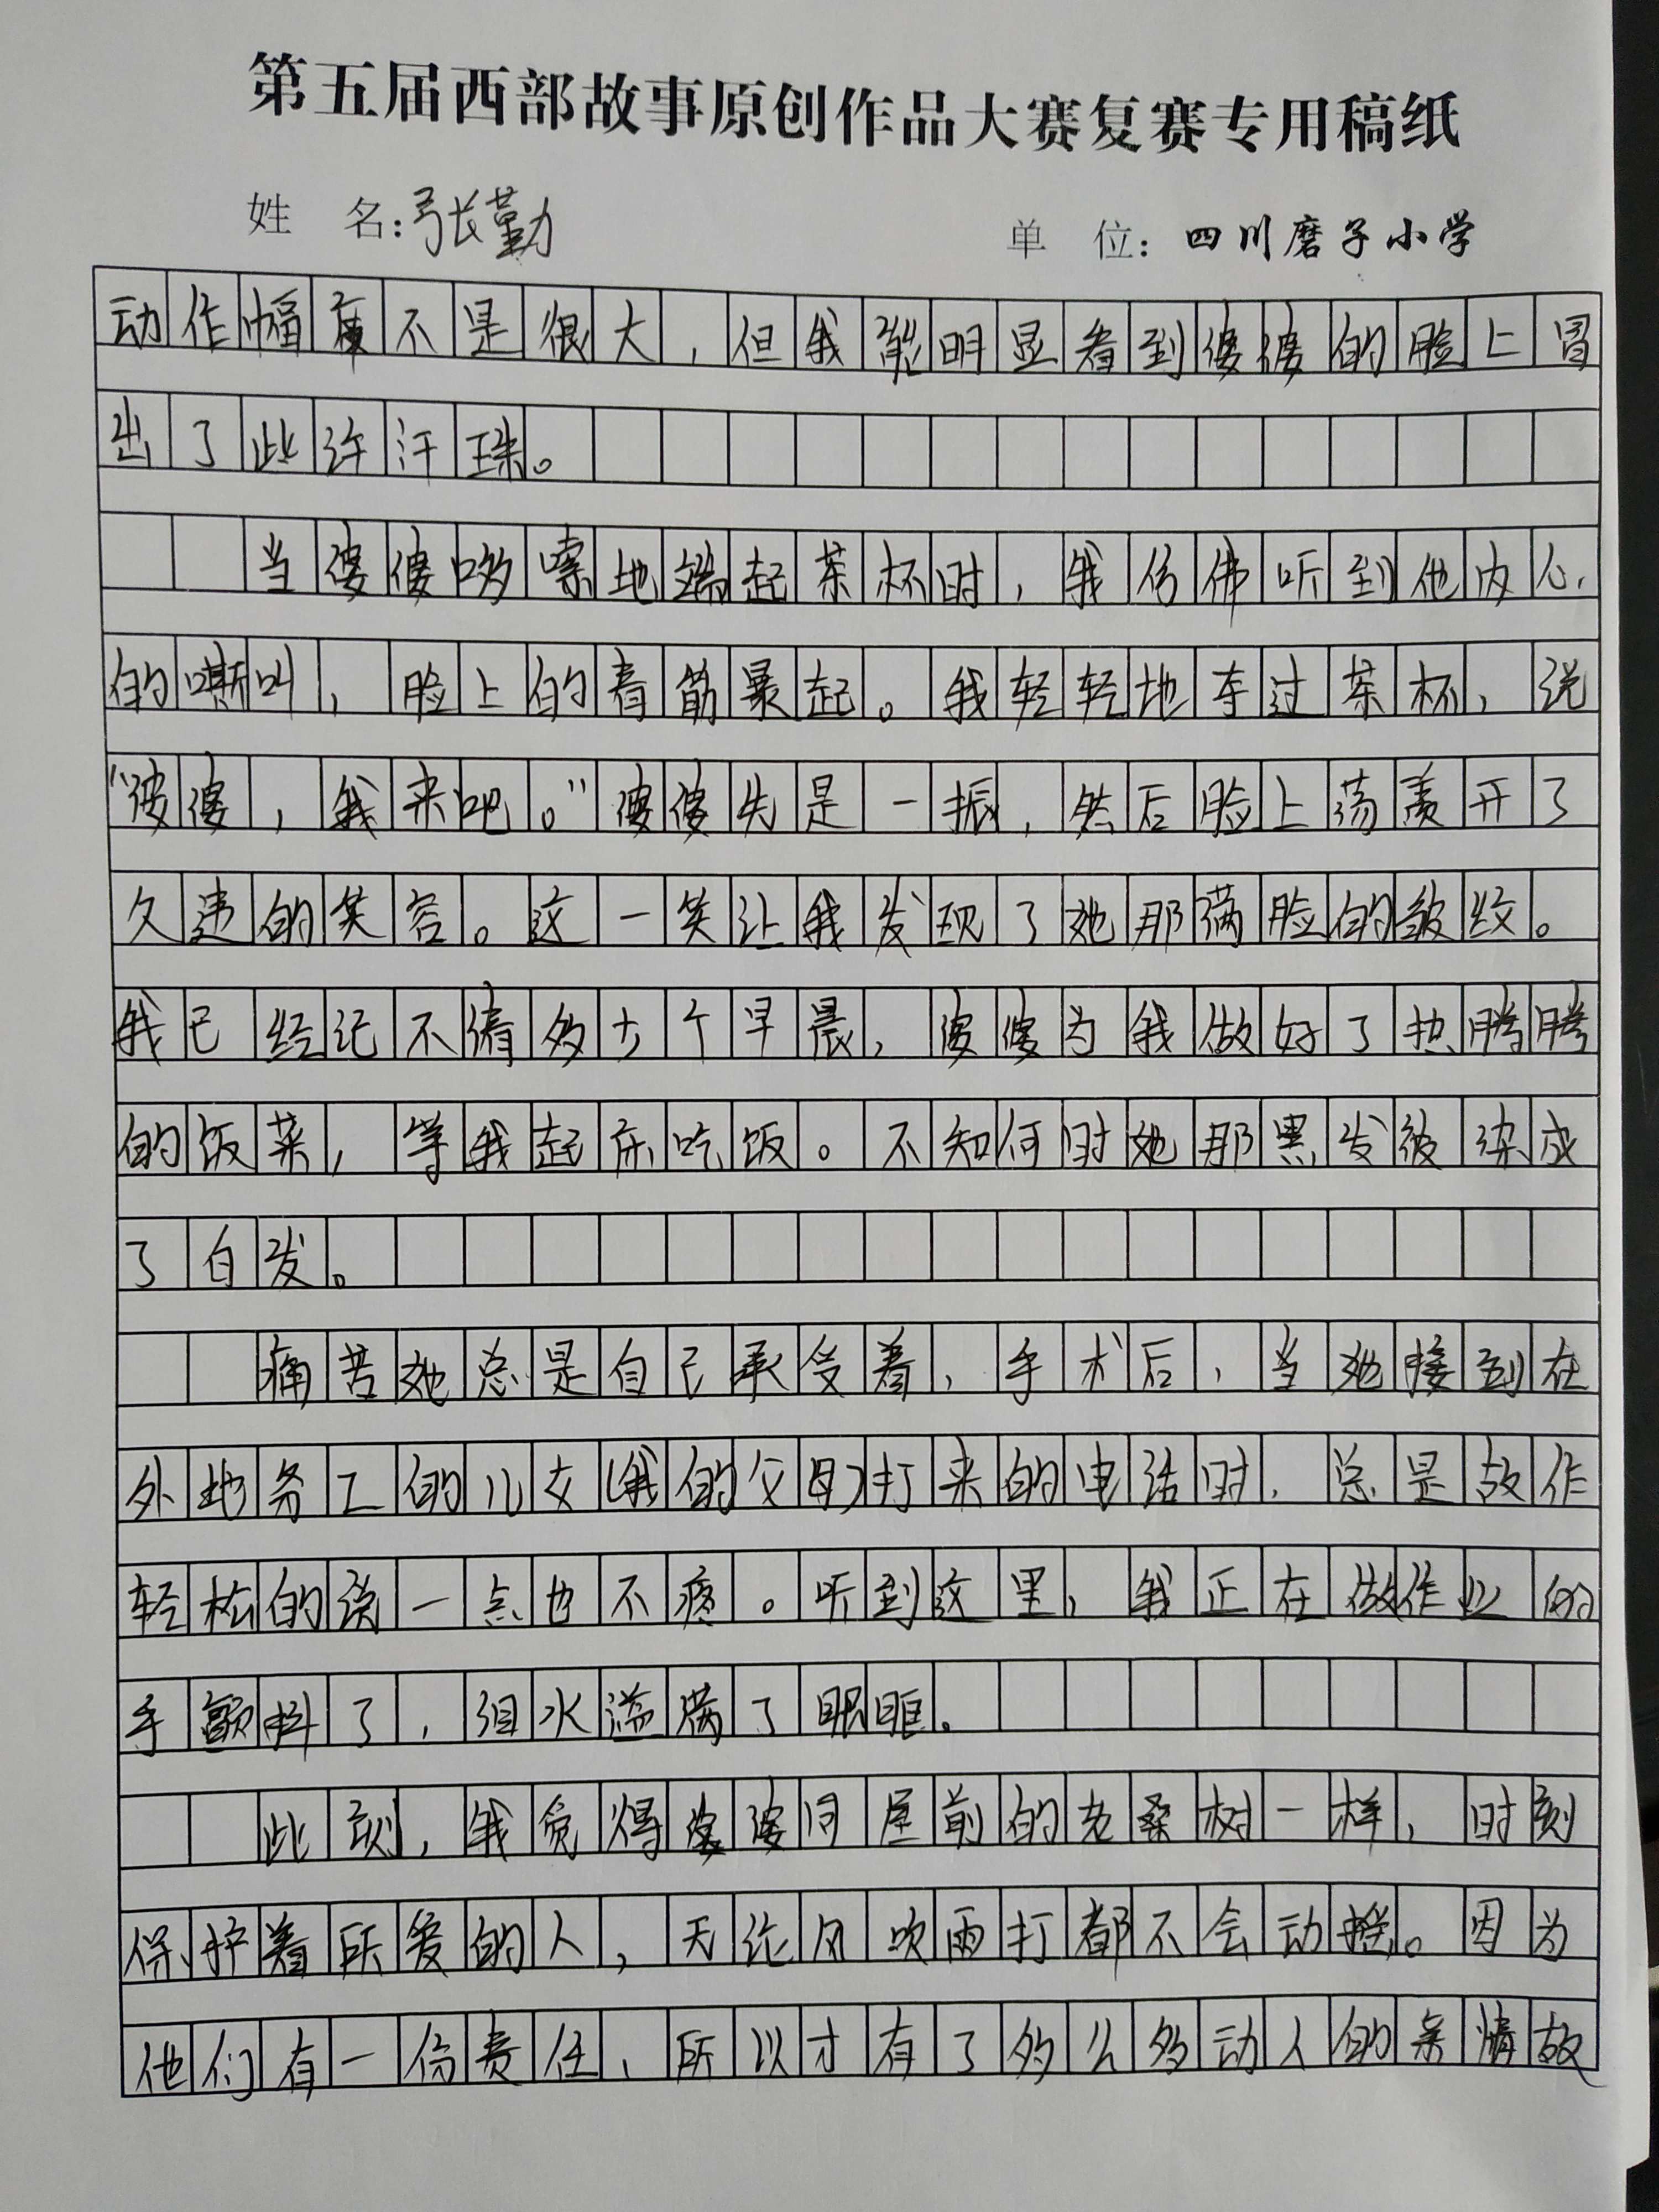 第五届西部故事原创作品大赛复赛专用稿纸
姓 名:张勤 单 位:四川磨子小学
动作幅度不是很大,但我能明显看到婆婆的脸上冒
出了此许汗珠。
当婆婆哆嗦地端起茶杯时,我仿佛听到他内心
的嘶叫,脸上的青筋暴起。我轻轻地夺过茶杯,说
“婆婆,我来吧。”婆婆先是一振,然后脸上荡漾开了
久违的笑容。这一笑让我发现了她那满脸的皱纹。
我已经记不清多少个早晨,婆婆为我做好了热腾腾
的饭菜,等我起床吃饭。不知何时她那黑发被染成
了白发。
痛苦她总是自己承受着,手术后,当她接到在
外地务工的儿女(我的父母)打来的电话时,总是故作
轻松的说一点也不疼。听到这里,我正在做作业的
手颤抖了,泪水溢满了眼眶。
此刻,我觉得婆婆同屋前的老桑树一样,时刻
保护着所爱的人,无论风吹雨打都不会动摇。因为
他们有一份责任,所以才有了多么多动人的亲情故